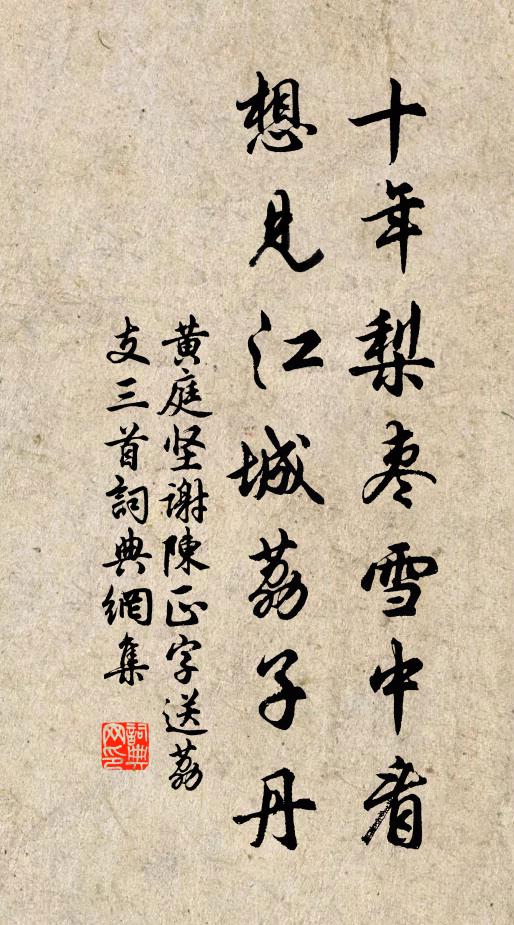 十年梨枣雪中看
想见江城荔子丹
黄庭坚谢陳正字送荔
支三首詞典網集
詞典网印